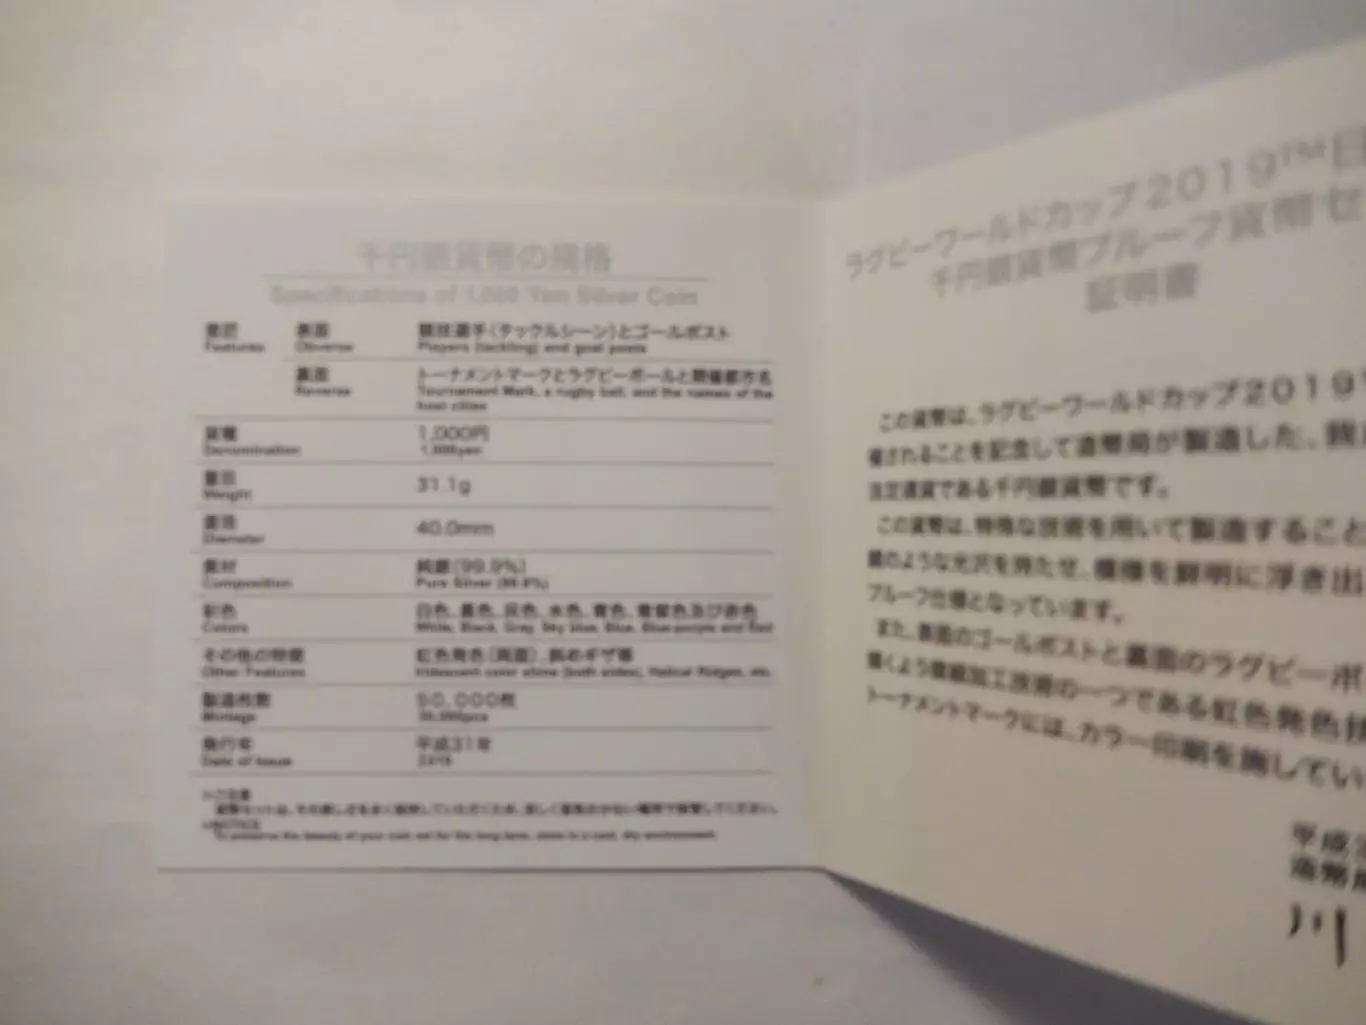 千円銀貨幣の規格
Specifications of 1,000 Yen Silver Coin
意匠 表面 競技選手(タックルシーン)とゴールポスト
Features Obverse Players (tackling) and goal posts
裏面 トーナメントマークとラグビーボールと開催都市名
Reverse Tournament Mark, a rugby ball, and the names of the
host cities
貨種 1,000円
Denomination 1,000yen
量目 31.1g
Weight
直径 40.0mm
Diameter
素材 純銀(99.9%)
Composition Pure Silver (99.9%)
彩色 白色、黒色、灰色、水色、青色、青紫色及び赤色
Colors White, Black, Gray, Sky blue, Blue, Blue-purple and Red
その他の特徴 虹色発色(両面)、斜めギザ等
Other Features Iridescent color shine (both sides), Helical Ridges, etc.
製造枚数 50,000枚
Mintage 50,000pcs
発行年 平成31年
Date of Issue 2019
※ご注意
貨幣セットは、その美しさを末永く保持していただくため、涼しく湿気の少ない場所で保管してください。
※NOTICE
To preserve the beauty of your coin set for the long term, store in a cool, dry environment.
ラグビーワールドカップ2019™日
千円銀貨幣プルーフ貨幣セ
証明書
この貨幣は、ラグビーワールドカップ2019
催されることを記念して造幣局が製造した、我
法定通貨である千円銀貨幣です。
この貨幣は、特殊な技術を用いて製造すること
鏡のような光沢を持たせ、模様を鮮明に浮き出
プルーフ仕様となっています。
また、表面のゴールポストと裏面のラグビーボ
輝くよう微細加工技術の一つである虹色発色技
トーナメントマークには、カラー印刷を施してい
平成
造幣局
川